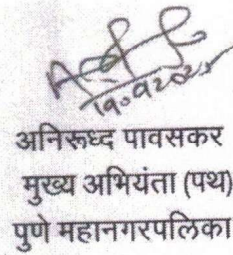 अनिरूध्द पावसकर
मुख्य अभियंता (पथ)
पुणे महानगरपलिका